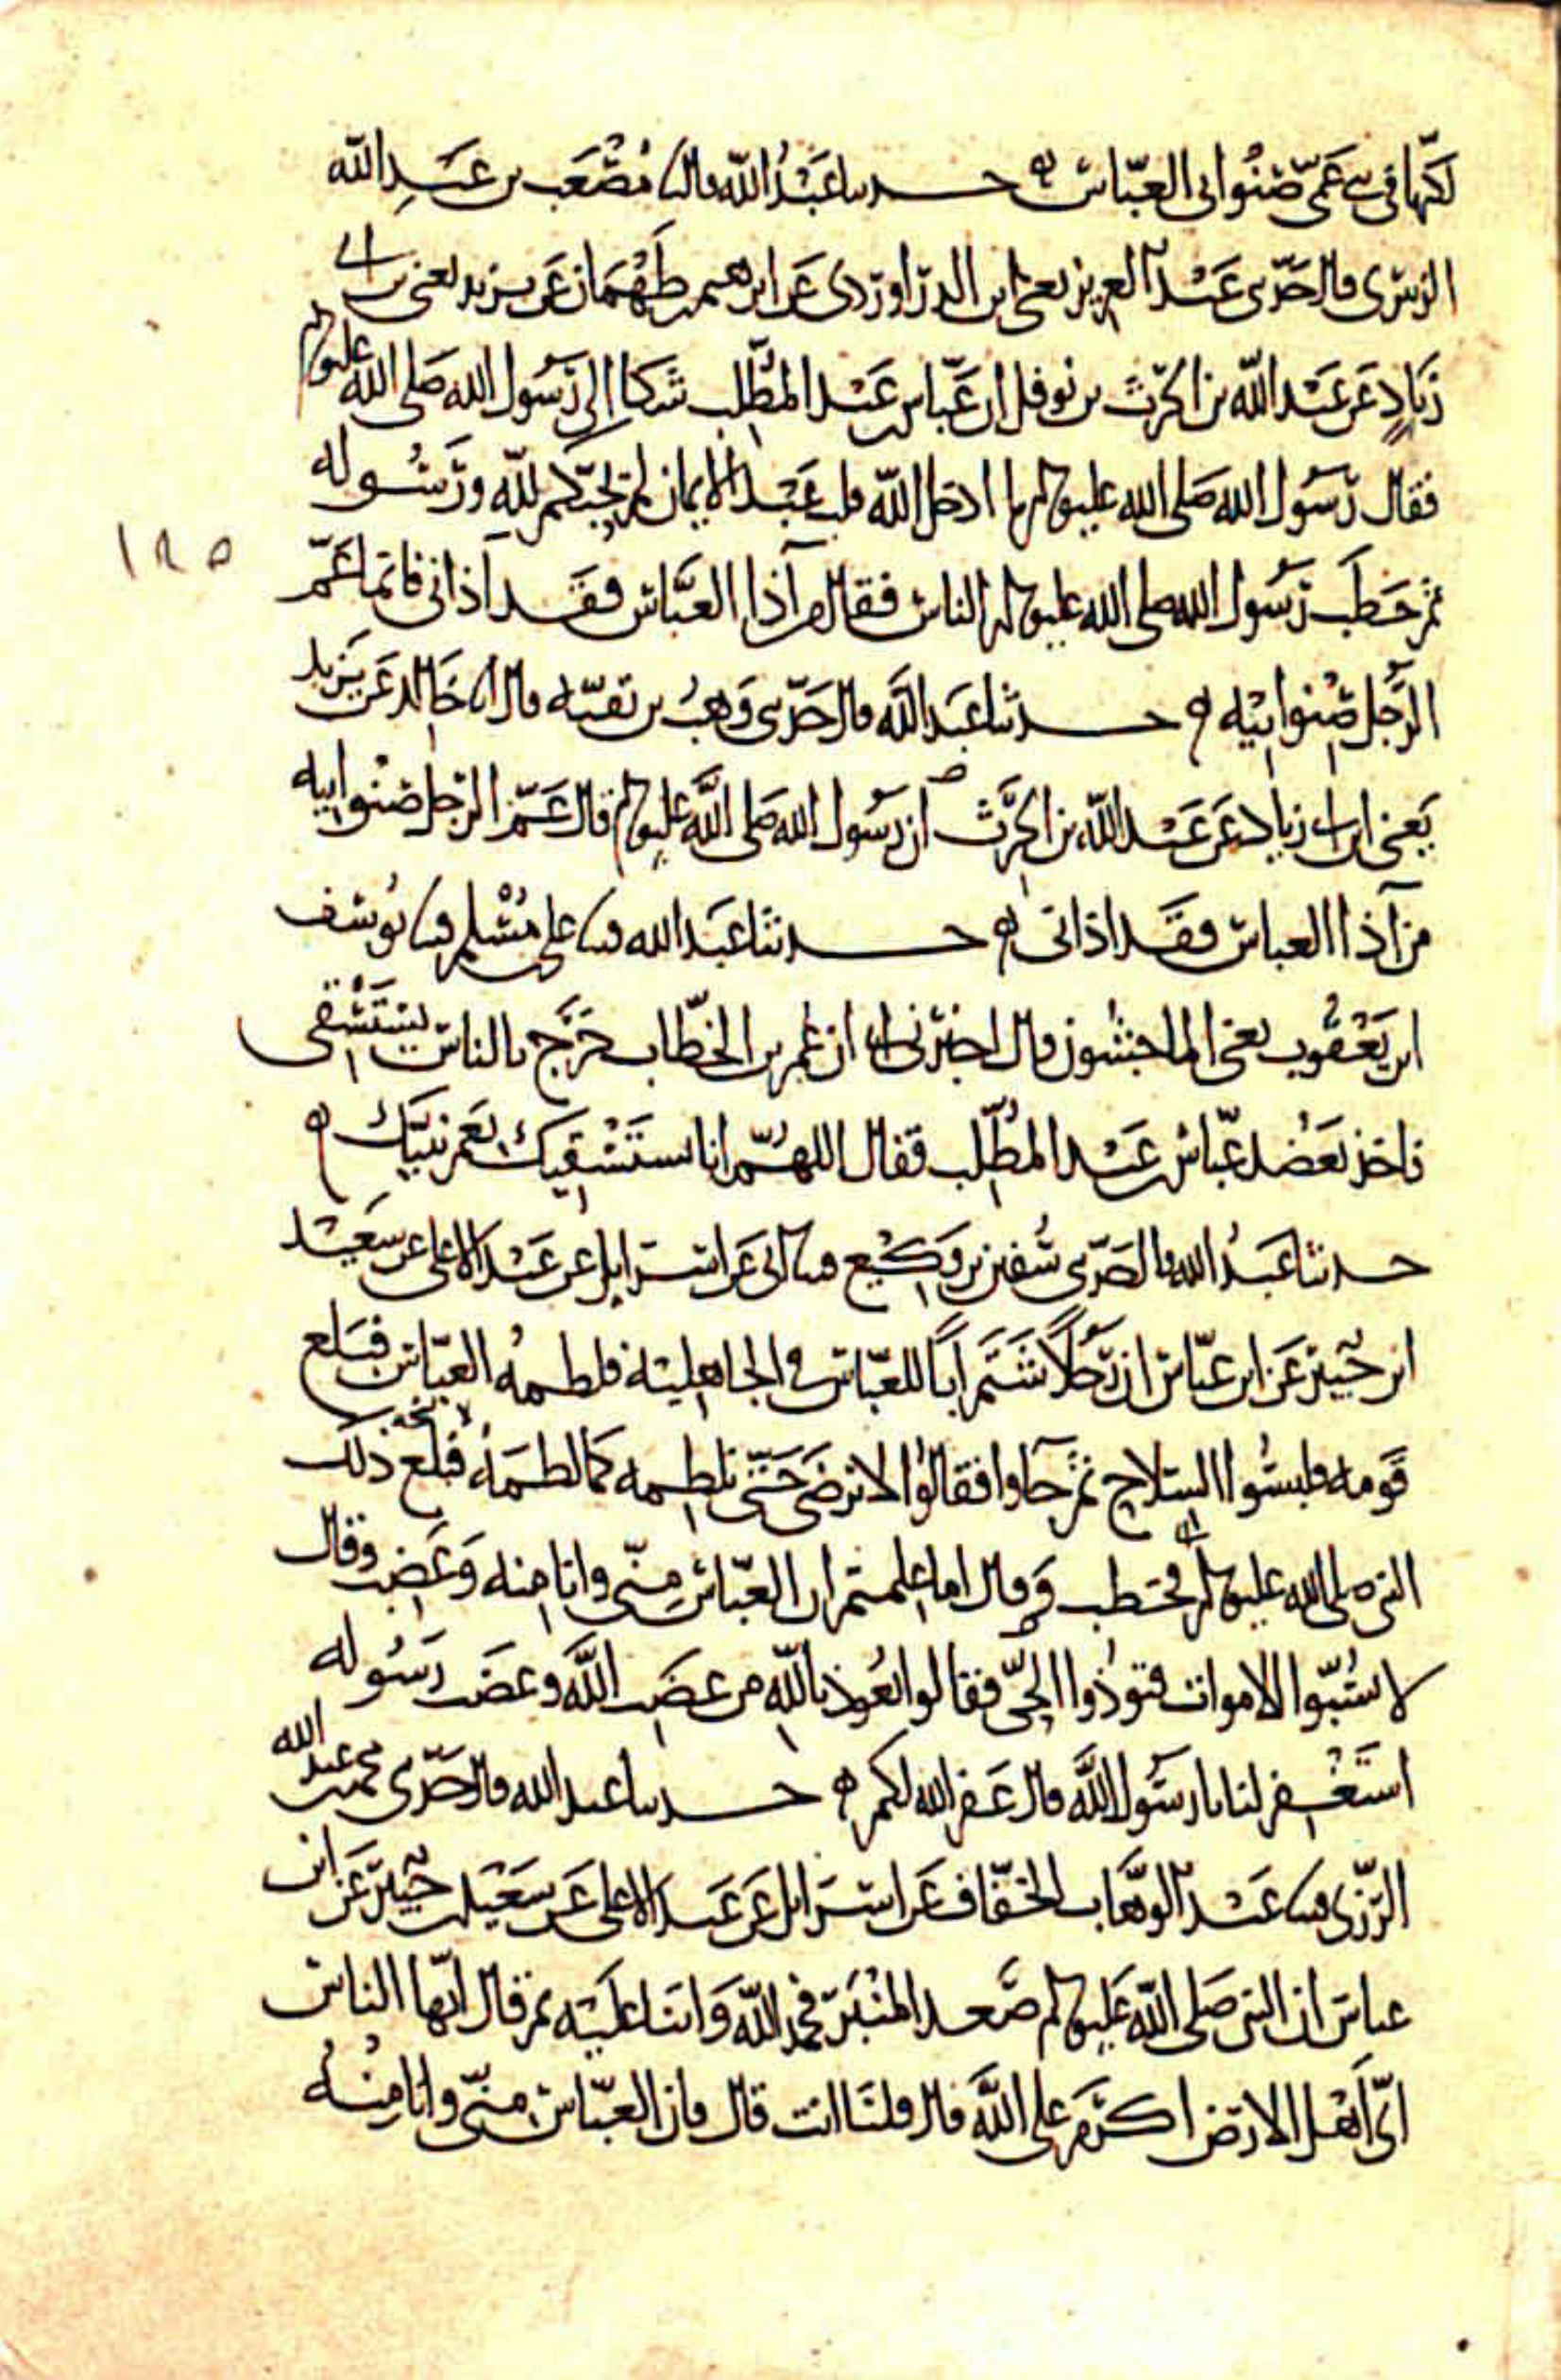 لكهاتين عمي صنو ابي العباس ه حدثنا عبد الله قال نا مصعب بن عبد الله
الزبيري قال حدثني عبد العزيز يعني ابن الدراوردي عن ابرهيم بن طهمان عن يزيد يعني بن ابي
زياد عن عبد الله بن الحرث بن نوفل ان عباس بن عبد المطلب شكا الى رسول الله صلى الله عليه وسلم
فقال رسول الله صلى الله عليه وسلم ما ادخل الله قلب عبد الايمان لم يحبكم لله ورسوله
ثم خطب رسول الله صلى الله عليه وسلم الناس فقال من آذا العباس فقد آذاني فانما عم
الرجل صنو ابيه ه حدثنا عبد الله قال حدثني وهب بن بقية قال انا خالد عن يزيد
يعني ابن ابي زياد عن عبد الله بن الحرث ان رسول الله صلى الله عليه وسلم قال عم الرجل صنو ابيه
من آذا العباس فقد اذاني ه حدثنا عبد الله قثنا علي بن مسلم قثنا يوسف
ابن يعقوب يعني الماجشون قال اخبرني ابي ان عمر بن الخطاب خرج بالناس يستسقي
فاخذ بعضد عباس بن عبد المطلب فقال اللهم انا نستسقيك بعم نبيك ه
حدثنا عبد الله قال حدثني سفين بن وكيع قثنا ابي عن اسرايل عن عبد الاعلى عن سعيد
ابن جبير عن ابن عباس ان رجلا شتم ابا للعباس في الجاهلية فلطمه العباس فبلع
قومه فلبسوا السلاح ثم جاوا فقالوا لا نرضى حتى نلطمه كما لطمه فبلغ ذلك
النبي صلى الله عليه وسلم فخطب وقال اما علمتم ان العباس مني وانا منه وغضب وقال
لا تسبوا الاموات فتوذوا الحي فقالوا نعوذ بالله من غضب الله وغضب رسوله
استغفر لنا يا رسول الله قال غفر الله لكم ه حدثنا عبد الله قال حدثني محمد بن عبد الله
الرزي قثنا عبد الوهاب الخفاف عن اسرايل عن عبد الاعلى عن سعيد بن جبير عن ابن
عباس ان النبي صلى الله عليه وسلم صعد المنبر فحمد الله واثنا عليه ثم قال ايها الناس
اي اهل الارض اكرم على الله قال قلنا انت قال فان العباس مني وانا منه
١٨٥